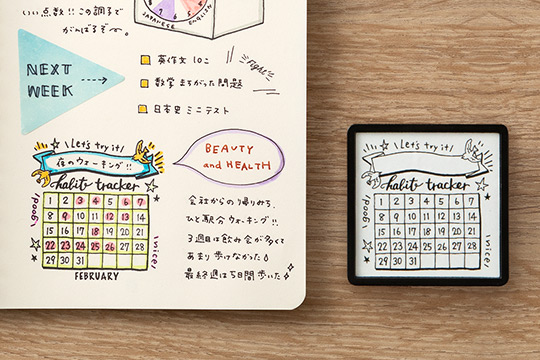 いい点数!! この調子で
がんばるぞ〜。
JAPANESE
ENGLISH
NEXT
WEEK
英作文 10こ
数学 まちがった問題
日本史 ミニテスト
Fight!
Let's try it!
夜のウォーキング!!
habit tracker
good!
nice!
1 2 3 4 5 6 7
8 9 10 11 12 13 14
15 16 17 18 19 20 21
22 23 24 25 26 27 28
29 30 31
FEBRUARY
BEAUTY
and HEALTH
会社からの帰りみち、
ひと駅分ウォーキング!!
3週目は飲み会が多くて
あまり歩けなかった
最終週は5日間歩いた
Let's try it!
habit tracker
good!
nice!
1 2 3 4 5 6 7
8 9 10 11 12 13 14
15 16 17 18 19 20 21
22 23 24 25 26 27 28
29 30 31